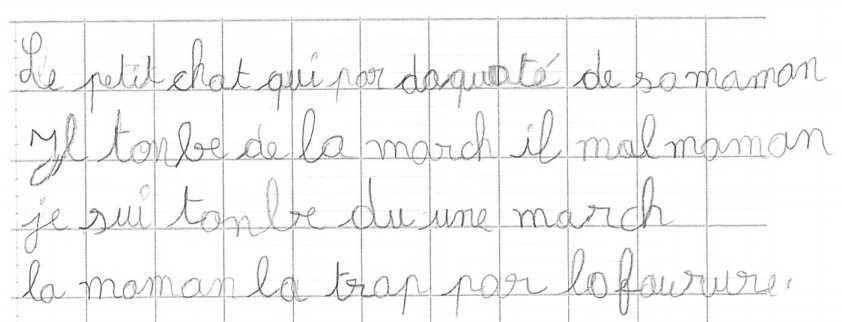 Le petit chat qui par daquoté de samaman
Il tonbe de la march il mal maman
je sui tonbe du une march
la maman la trap par lafourure.